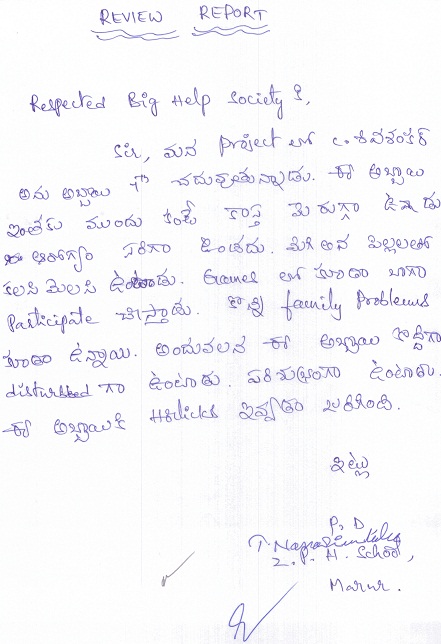 REVIEW REPORT
Respected Big Help Society కి,
Sir, మన project లో C. శివశంకర్
అను అబ్బాయి 7th చదువుతున్నాడు. ఈ అబ్బాయి
ఇంతకు ముందు కంటే కాస్త మెరుగ్గా ఉన్నాడు
ఆరోగ్యం సరిగా ఉండదు. మిగిలిన పిల్లలతో
కలసి మెలసి ఉంటాడు. Games లో కూడా బాగా
Participate చేస్తాడు. కొన్ని family Problems
కూడా ఉన్నాయి. అందువలన ఈ అబ్బాయి కొద్దిగా
disturbed గా ఉంటాడు. పరిశుభ్రంగా ఉంటాడు.
ఈ అబ్బాయికి Horlicks ఇవ్వడం జరిగింది.
ఇట్లు
P. D
Z. P. H. School,
Marur.